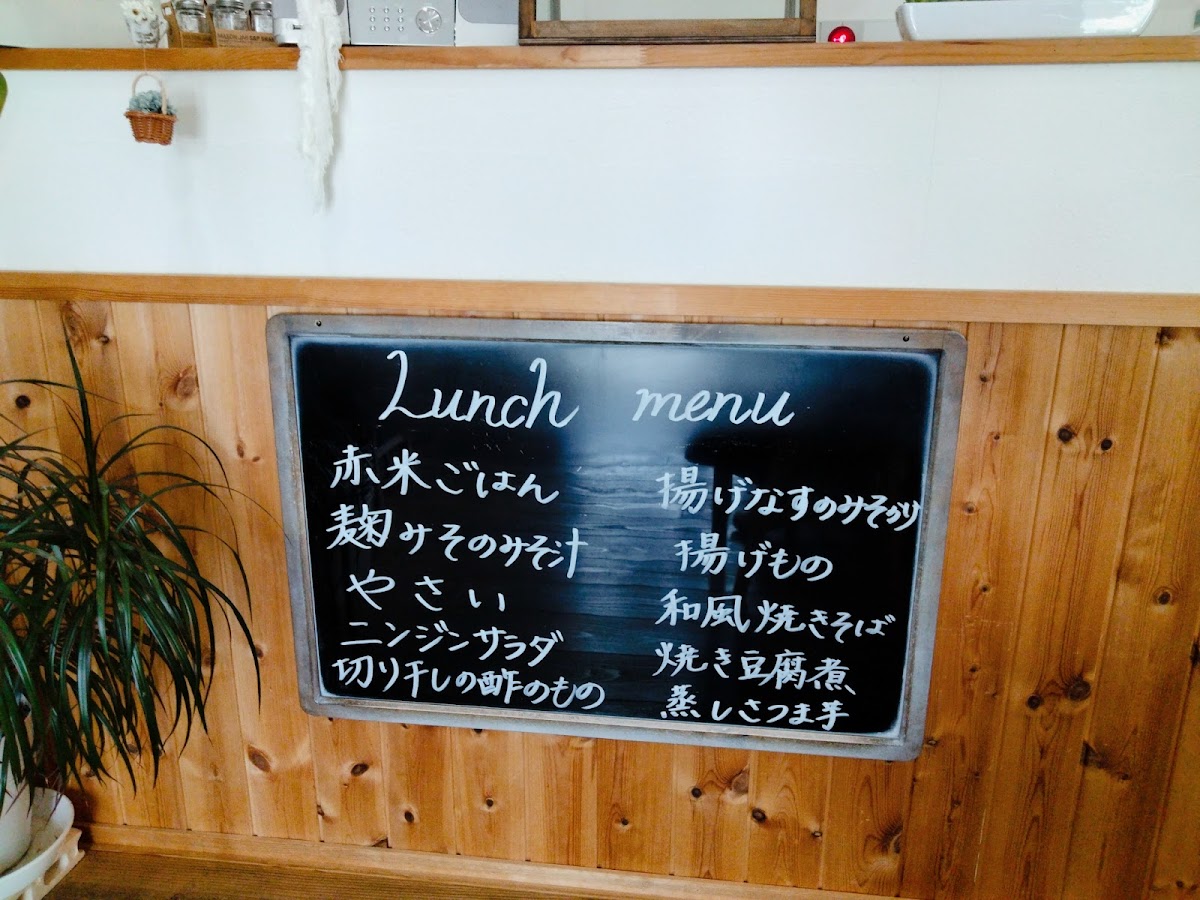 Lunch menu
赤米ごはん
麹みそのみそ汁
やさい
ニンジンサラダ
切り干しの酢のもの
揚げなすのみそかけ
揚げもの
和風焼きそば
焼き豆腐煮
蒸しさつま芋